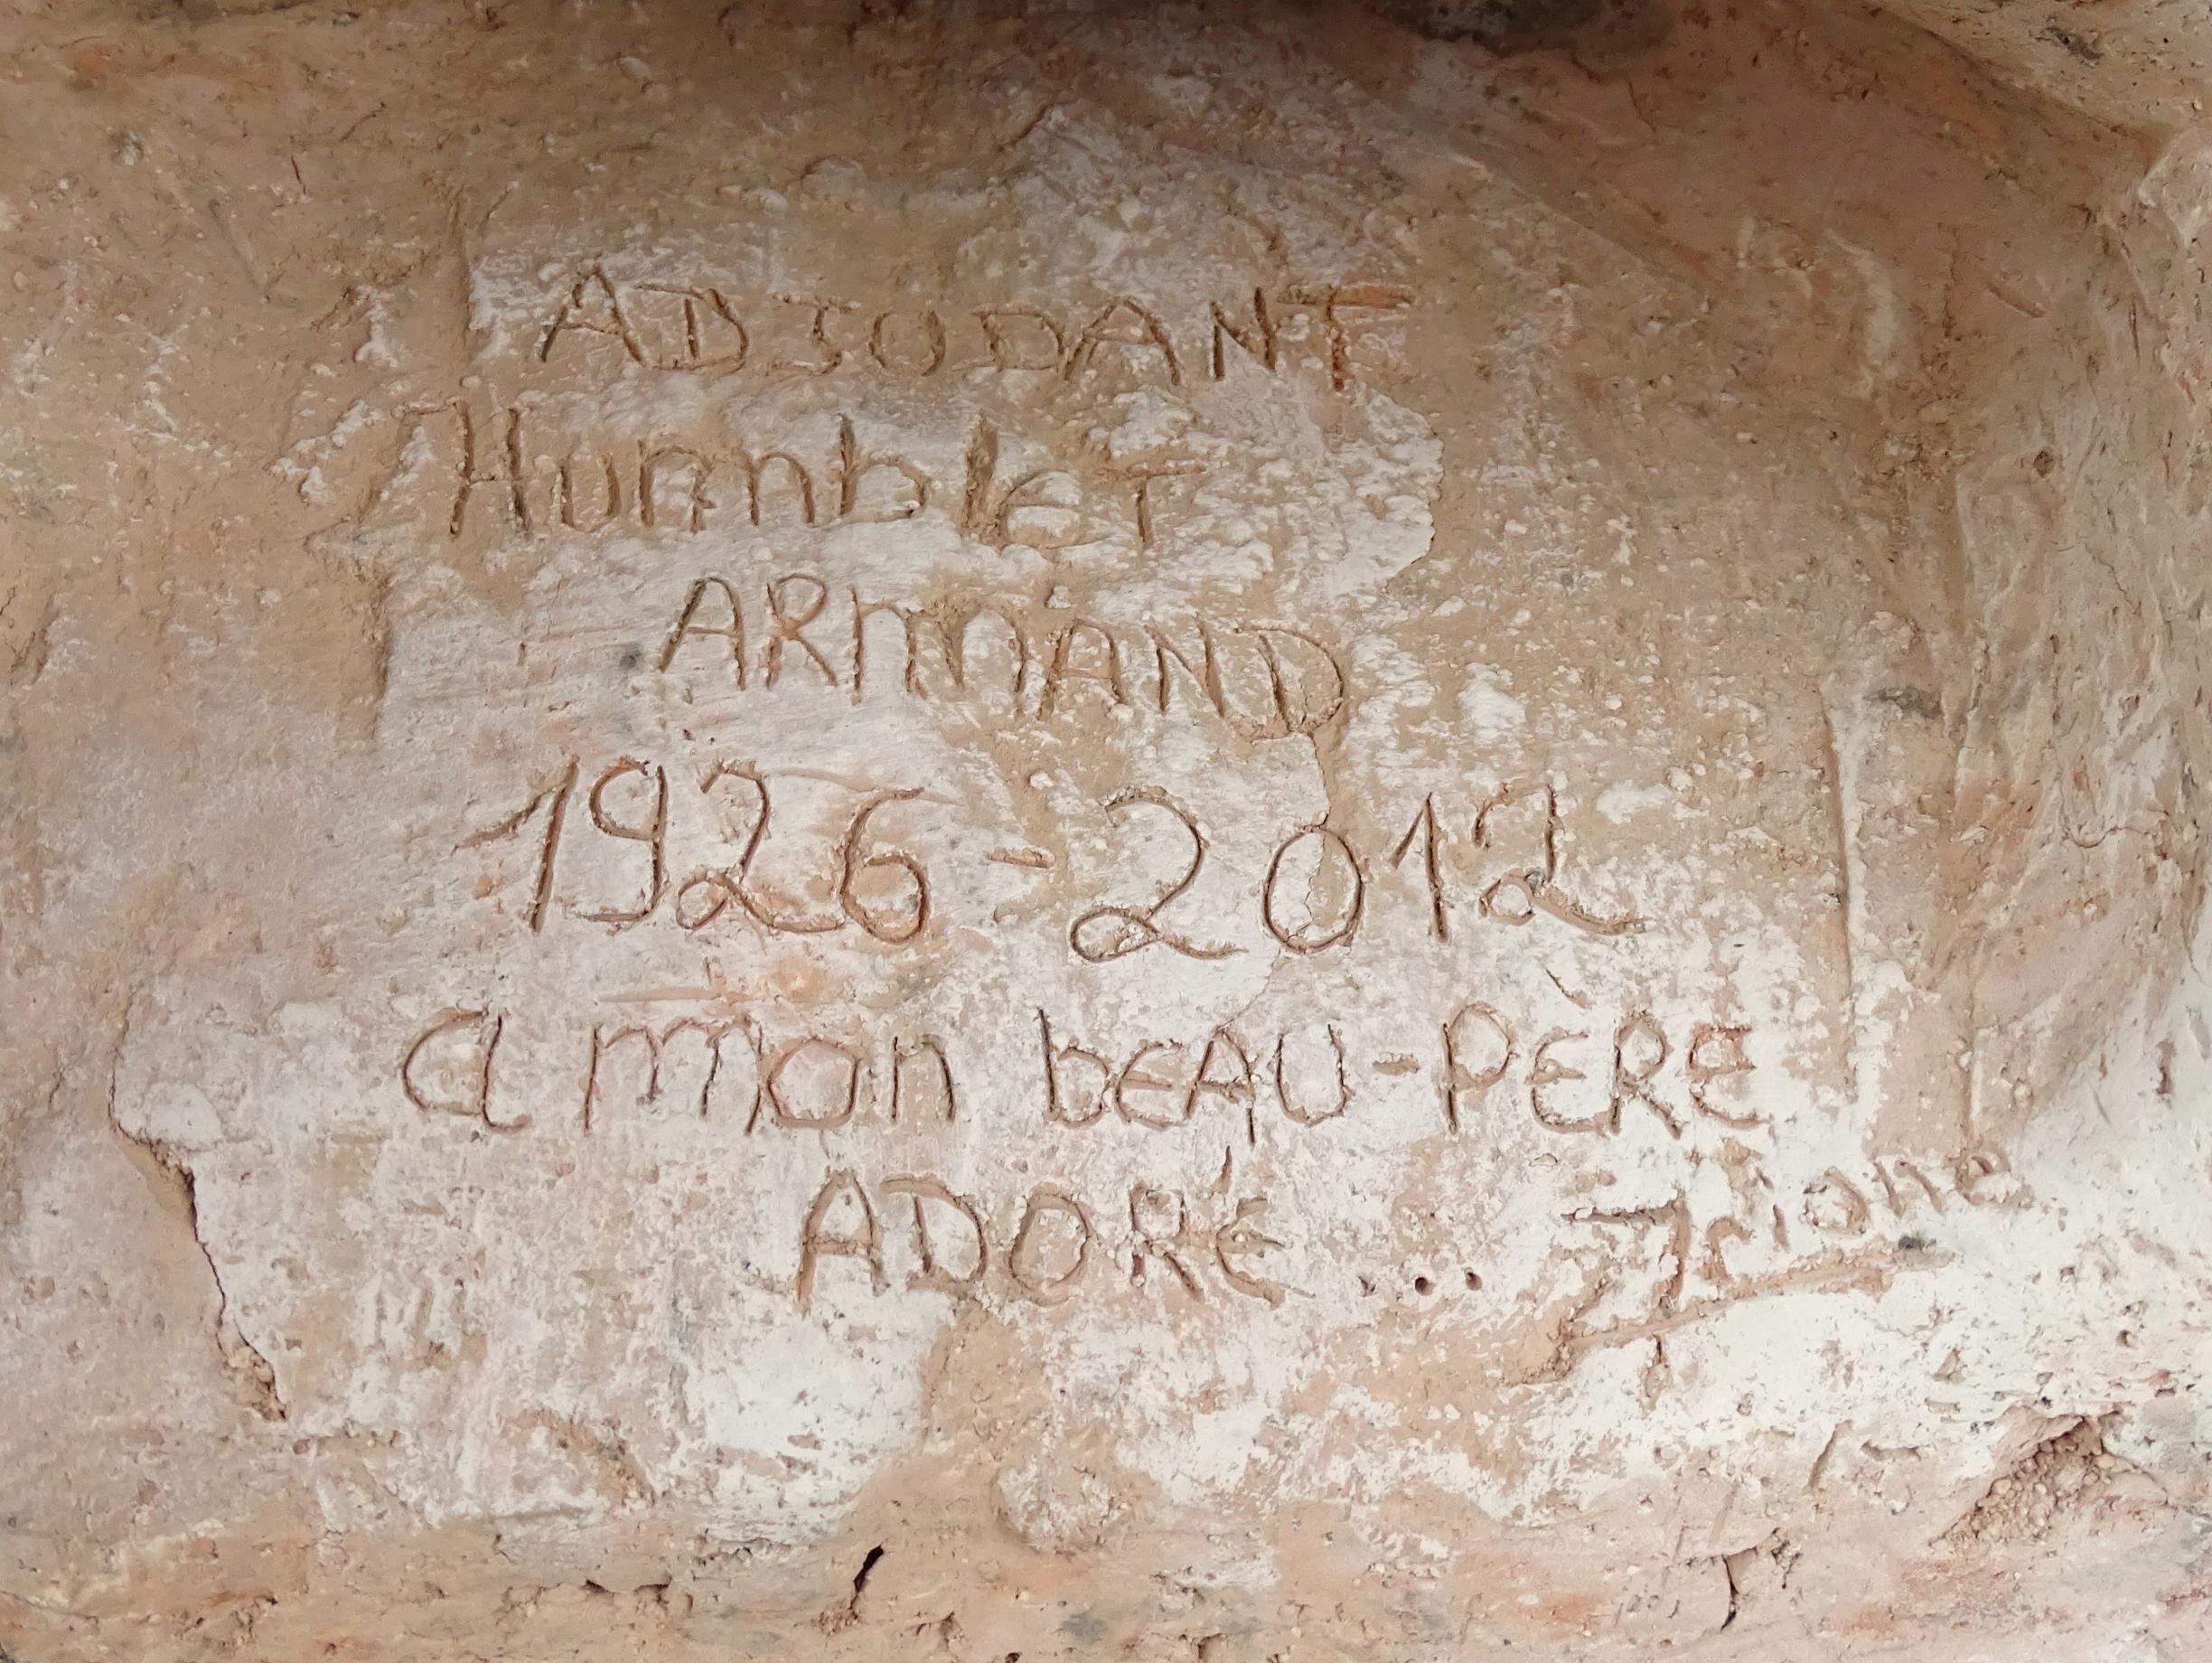 ADJUDANT
HumblET
ARmAND
1926 - 2012
a mon bEAU-PÈRE
ADORÉ ...